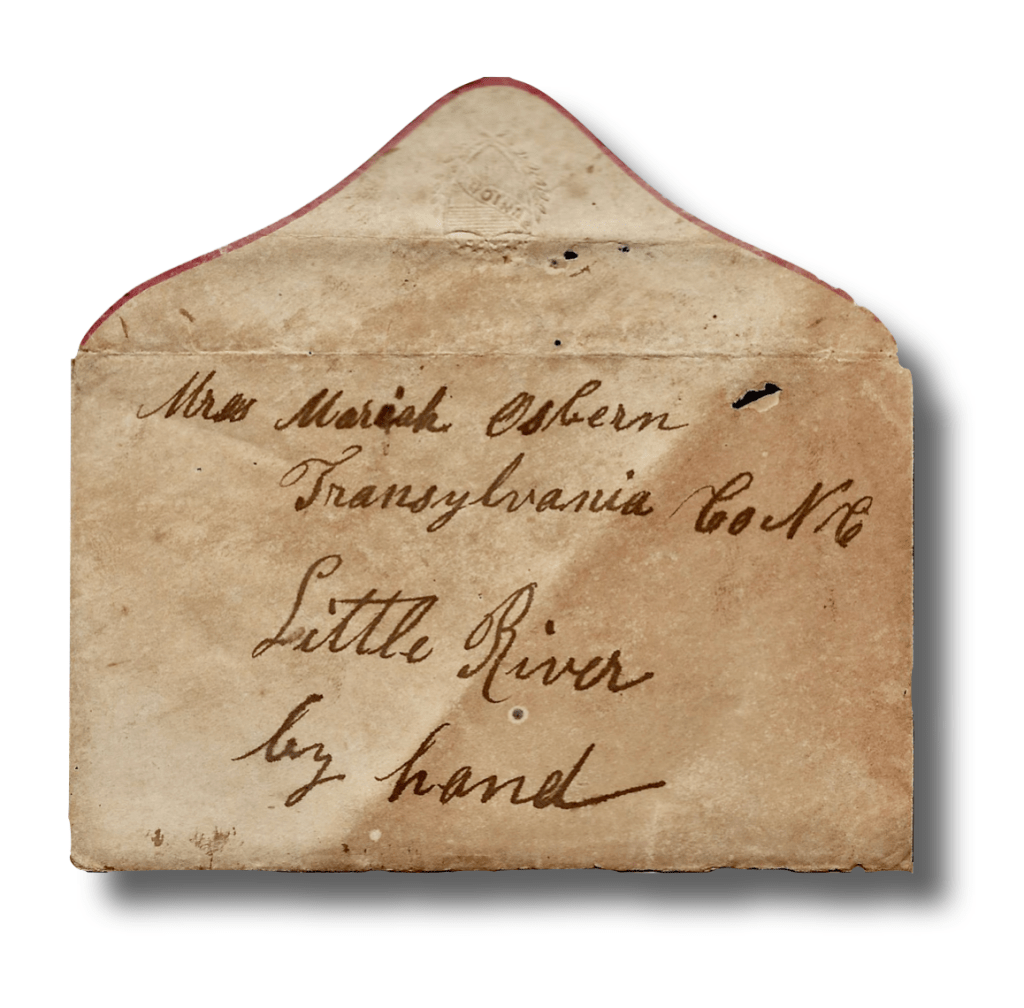 UNION
Mrs Mariah Osbern
Transylvania Co N C
Little River
by hand